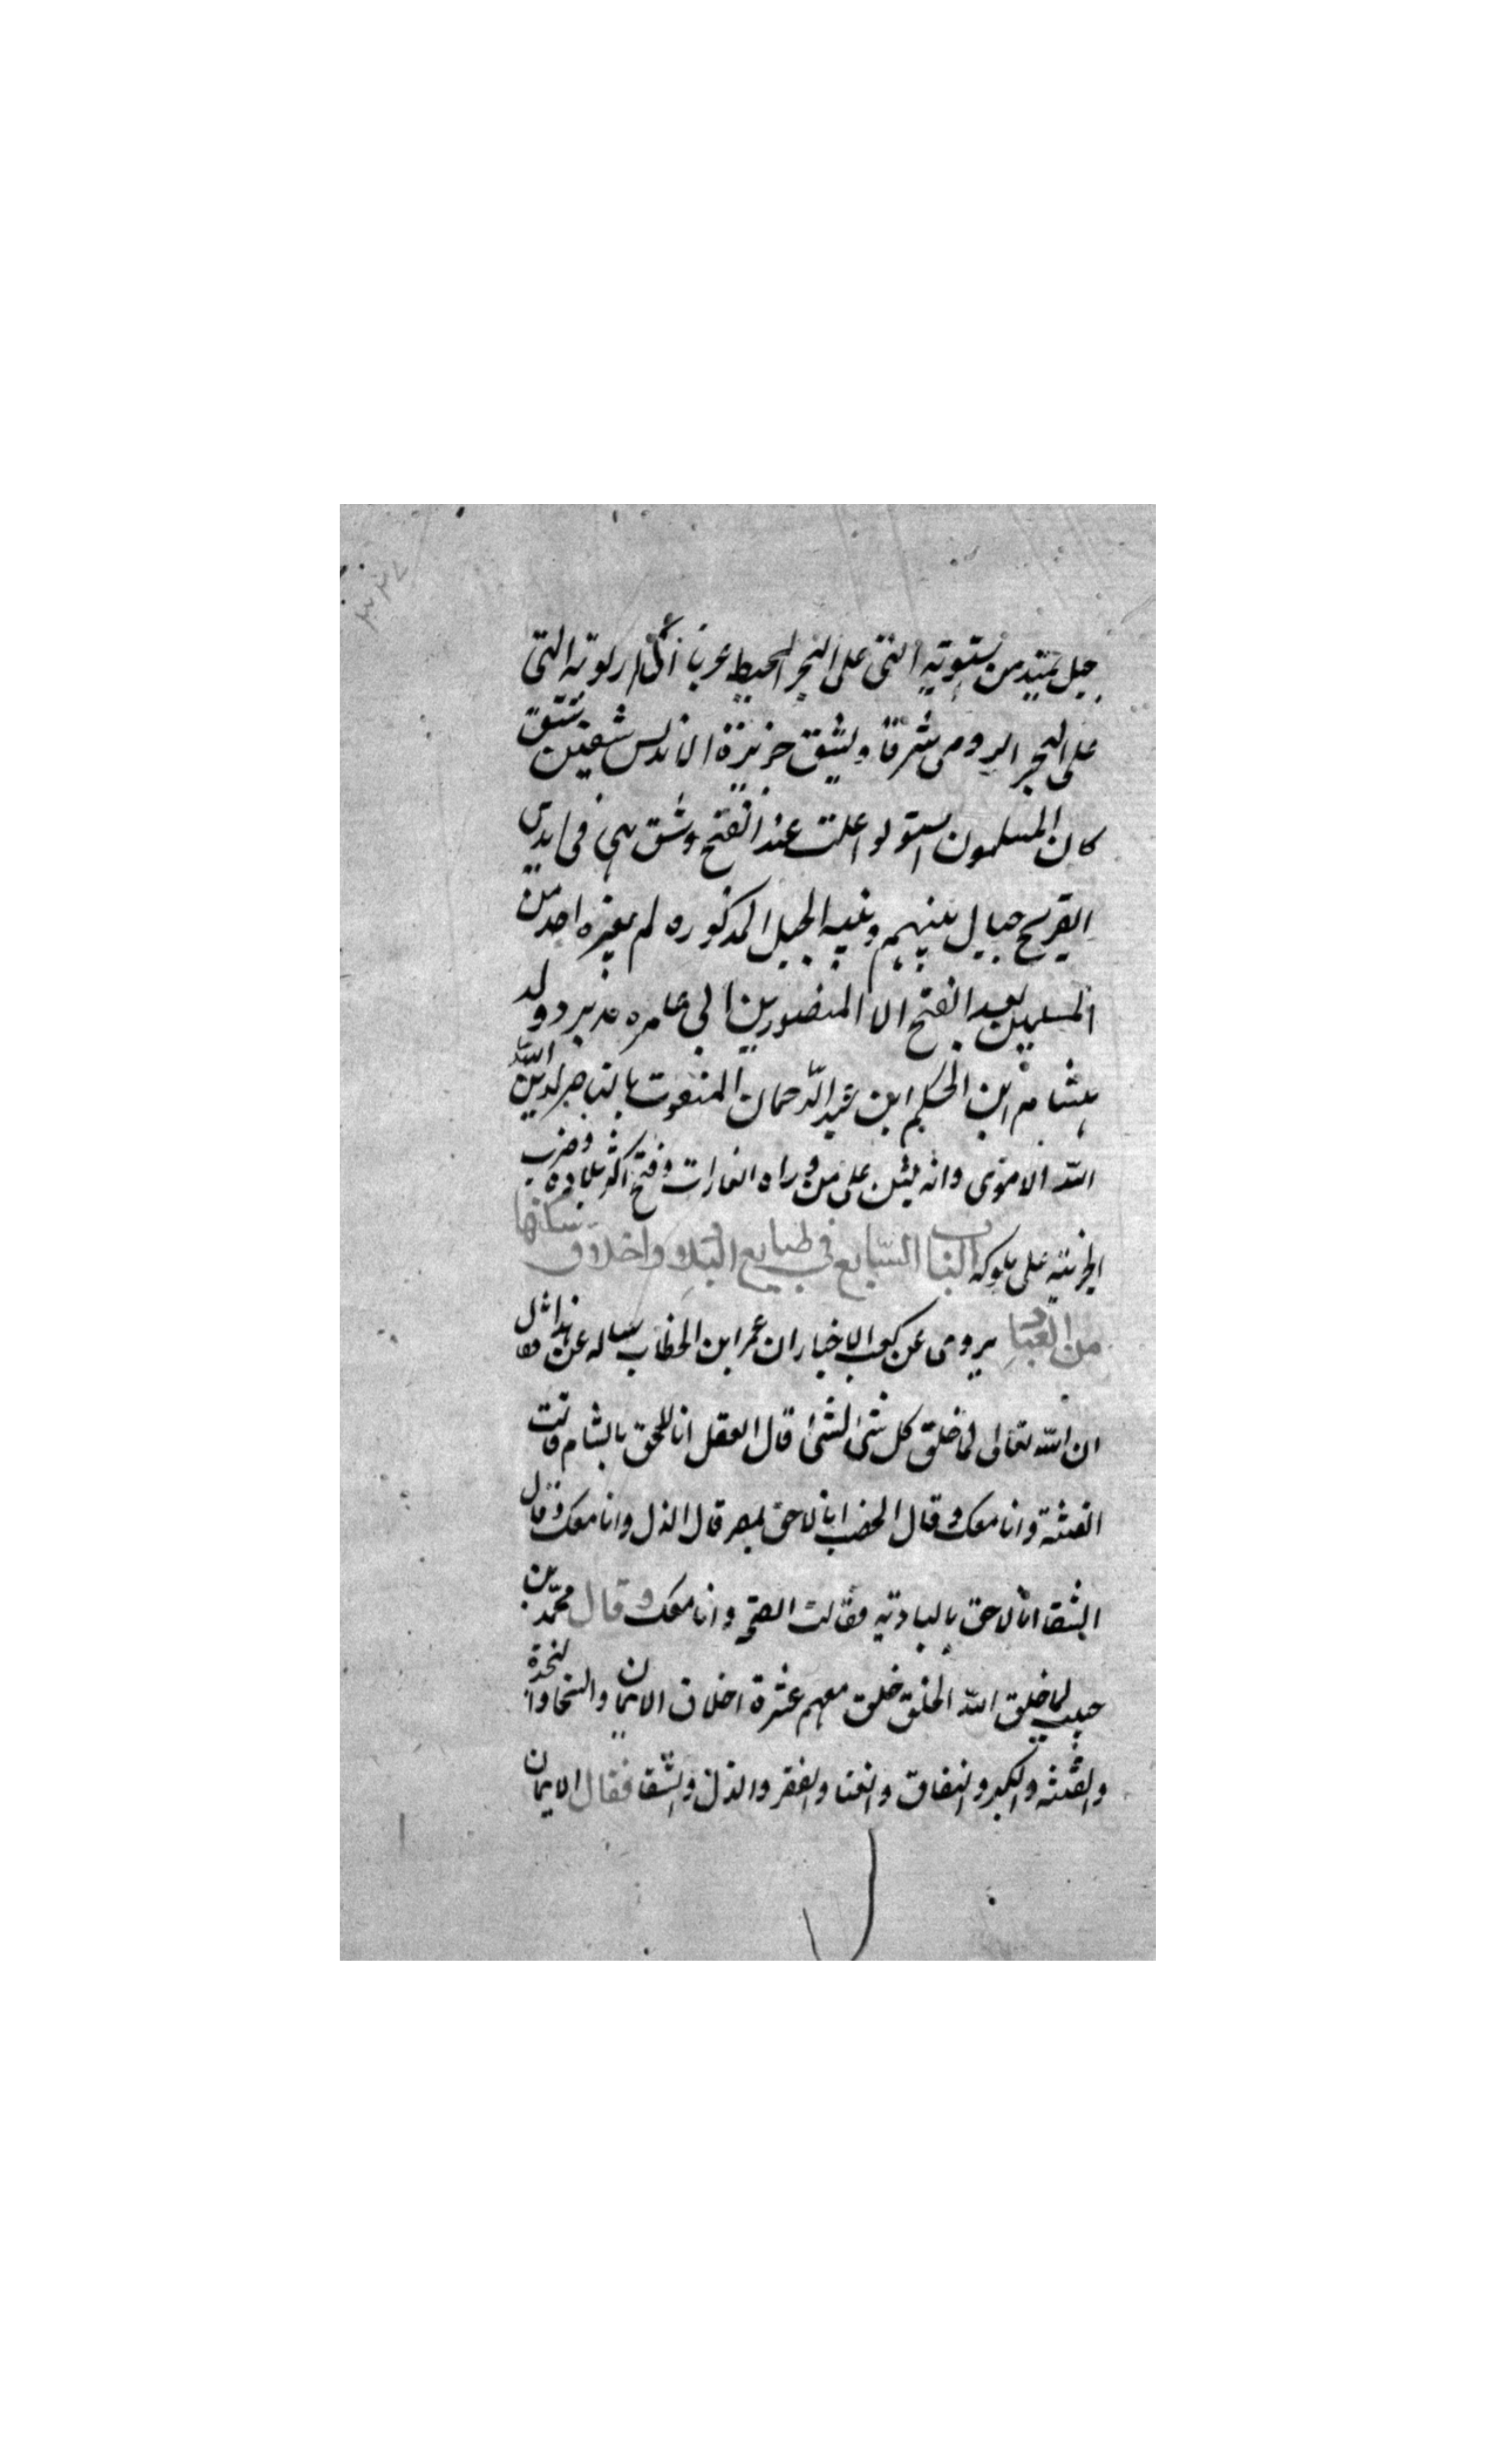 جبل يمتد من التى على البحر المحيط غربا التى
على البحر الرومى شرقا ويشق جزيرة الاندلس شقين شق
كان المسلمون استولوا عليه عند الفتح وشق هى فى ايدى
جبال بينهم وبينه الجبل المذكوره لم يغزه احد من
المسلمين بعد الفتح الا المنصور بن ابى عامره مدبر دولة
هشام ابن الحكم ابن عبد الرحمان المنعوت بالناصر لدين الله
الله الاموى وانه على من وراه الغارات وفتح اكثر بلاده وضرب
الجزيته على ملوكه الباب السابع فى طبايع البلاد واخلاق سكانها
من العباد يروى عن كعب الاخبار ان عمر ابن الخطاب ساله عن هذا فقال
ان الله تعالى لما خلق كل شئ لشئ قال العقل انا للحق بالشام قالت
الفتنة وانا معك وقال الخصب انا لاحق بمصر قال الذل وانا معك وقال
الشقا انا لاحق بالباديته فقالت الصحه وانا معك وقال محمد بن
حبيب لما خلق الله الخلق خلق معهم عشرة اخلاق الايمان والنجدة
والفتنه والكبر والنفاق والغنا والفقر والذل والشقا فقال الايمان